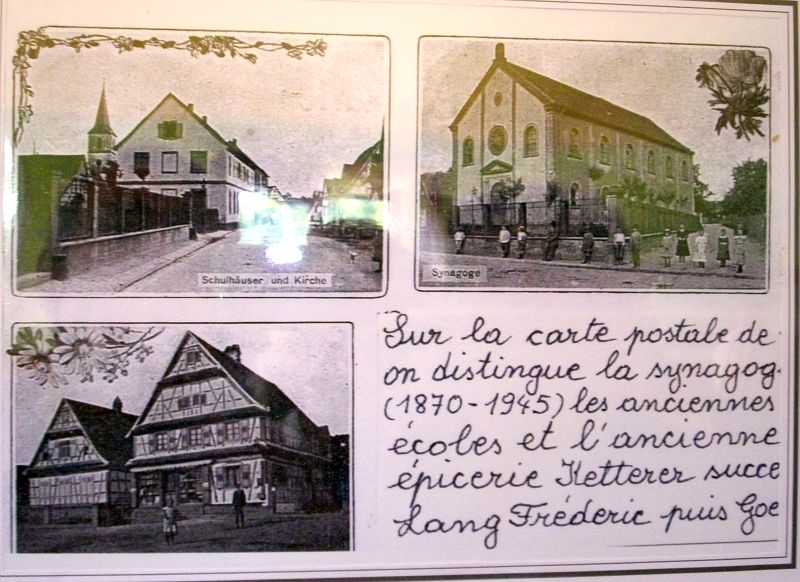 Schulhäuser und Kirche
Synagoge
Sur la carte postale de
on distingue la synagog
(1870-1945) les anciennes
écoles et l'ancienne
épicerie Ketterer succe
Lang Fréderic puis Goe